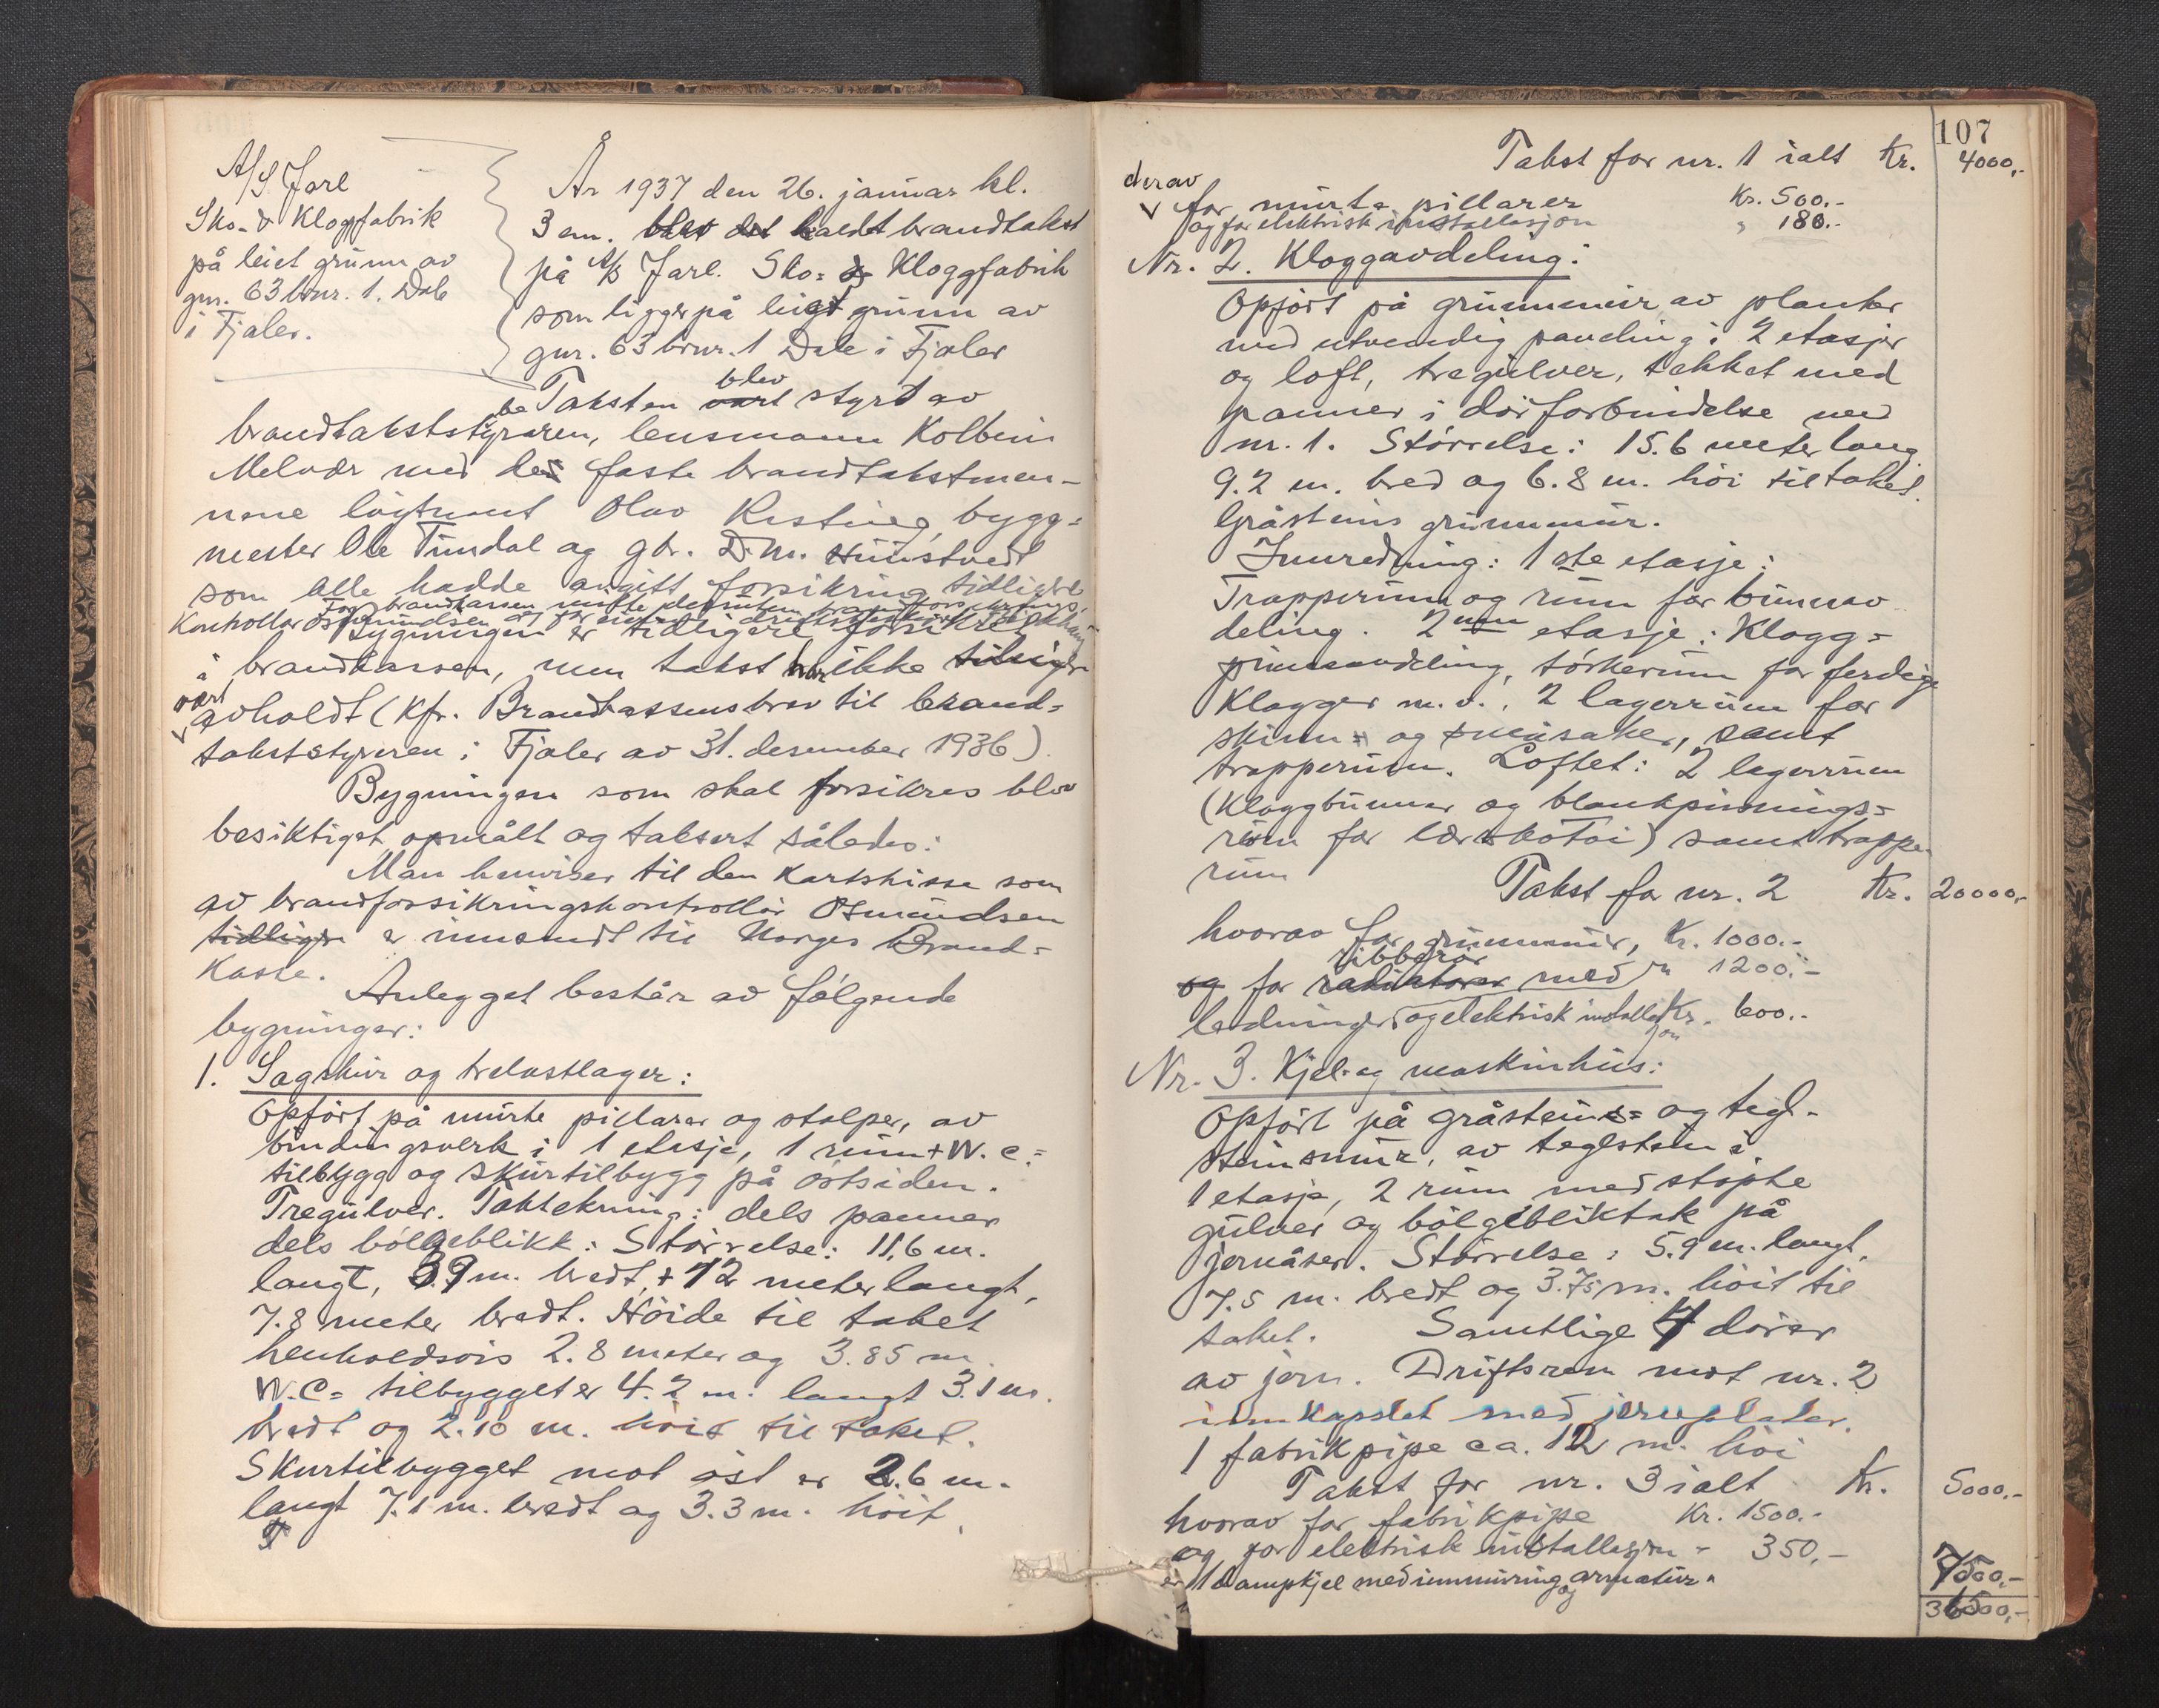 A/S Jarl
Sko- & Kloggfabrik
på leiet grunn av
gnr. 63 bnr. 1. Dale
i Fjaler.
År 1937 den 26. januar kl.
3 em. blev det haldt brandtakst
på A/S Jarl. Sko- & Kloggfabrik
som ligger på leiet grunn av
gnr. 63 bnr. 1 Dale i Fjaler
Taksten blev styrt av
brandtakstbestyreren, lensmann Kolbein
Melvær med de faste brandtakstmen-
nene løytnant Olav Risting, bygg-
mester Ole Tundal og gbr. D. M.
som alle hadde avgitt forsikring tidligere
For brandkassen møtte
Kontrollør Osmundsen og for eieren
Bygningen er tidligere forsikret
i brandkassen, men takst har ikke
vært
avholdt (kfr. Brandkassens brev til brand-
takststyreren i Fjaler av 31. desember 1936).
Bygningen som skal forsikres blev
besiktiget, opmålt og taksert således:
Man henviser til den kartskisse som
av brandforsikringskontrollør Osmundsen
tidligere er innsendt til Norges Brand-
kasse.
Anlegget består av følgende
bygninger:
1. Sagskur og trelastlager:
Opført på murte pillarer og stolper, av
bindingsverk i 1 etasje, 1 rum + W.C.-
tilbygg og skurtilbygg på østsiden.
Tregulver. Taktekning: dels panner
dels bølgeblikk: Størrelse: 11,6 m.
langt, 3.9 m. bredt, + 12 meter langt,
7.8 meter bredt. Høide til taket
henholdsvis 2.8 meter og 3.85 m.
W.C.- tilbygget er 4.2 m. langt 3.1 m.
bredt og 2.10 m. høit til taket.
Skurtilbygget mot øst er 2.6 m.
langt 7.1 m. bredt og 3.3 m. høit.
107
Takst for nr. 1 ialt Kr. 4000,-
derav
for murte pillarer Kr. 500.-
og for elektrisk installasjon " 180.-
Nr. 2. Kloggavdeling:
Opført på grunnmur av planker
med utvendig paneling i 2 etasjer
og loft, tregulver, tekket med
panner i dørforbindelse med
nr. 1. Størrelse: 15.6 meter lang
9.2 m. bred og 6.8 m. høi til taket.
Gråsteins grunnmur.
Innredning: 1ste etasje:
Trapperum og rum for bunnav-
deling. 2nen etasje: Klogg-
pinneavdeling, tørkerum for ferdige
Klogger m.v., 2 lagerrum for
skinn- og småsaker, samt
trapperum. Loftet: 2 lagerrum
(Kloggbunner og blankpussnings-
rum for lærskotøi) samt trappe-
rum
Takst for nr. 2 Kr. 20000,-
hvorav for grunnmur, Kr. 1000.-
ribberør
og for radiatorer med " 1200.-
ledninger og elektrisk installasjon Kr. 600.-
Nr. 3. Kjel- og maskinhus:
Opført på gråsteins- og tegl-
steinsmur, av teglstein i
1 etasje, 2 rum med støpte
gulver og bølgebliktak på
jernåser. Størrelse: 5.9 m. langt,
7.5 m. bredt og 3.75 m. høit til
taket. Samtlige 4 dører
av jern. Driftsrem mot nr. 2
innkapslet med jernplater.
1 fabrikpipe ca. 12 m. høi
Takst for nr. 3 ialt Kr. 5000.-
hvorav for fabrikpipe Kr. 1500.-
og for elektrisk installasjon " 350,-
1 dampkjel med innmuring og armatur " 7500,-
36500,-